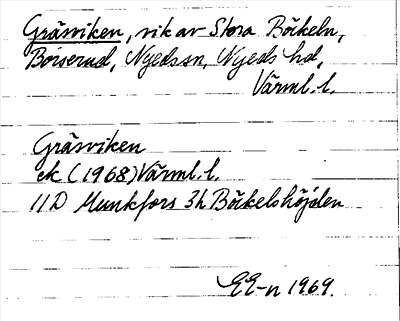 Gräsviken, vik av Stora Böckeln,
Börserud, Nyedssn, Nyeds hd,
Värml. l.
Gräsviken
ek (1968) Värml. l.
11D Munkfors 3h Böckelshöjden
EE-n 1969.